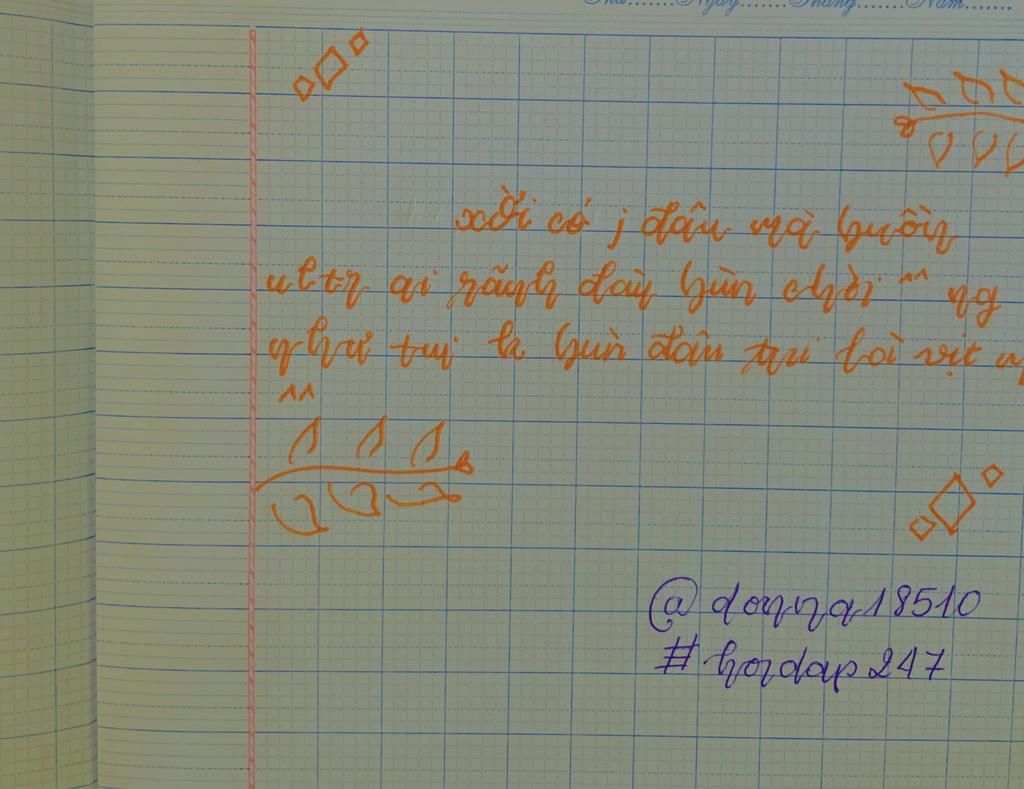 Thứ.......Ngày.......Tháng.......Năm.......
xời có j đâu mà buồn
ai rãnh đâu bùn chời ^^ ng
như tui k bùn đâu tui lòi vịt
^^
@donna18510
#hoidap247